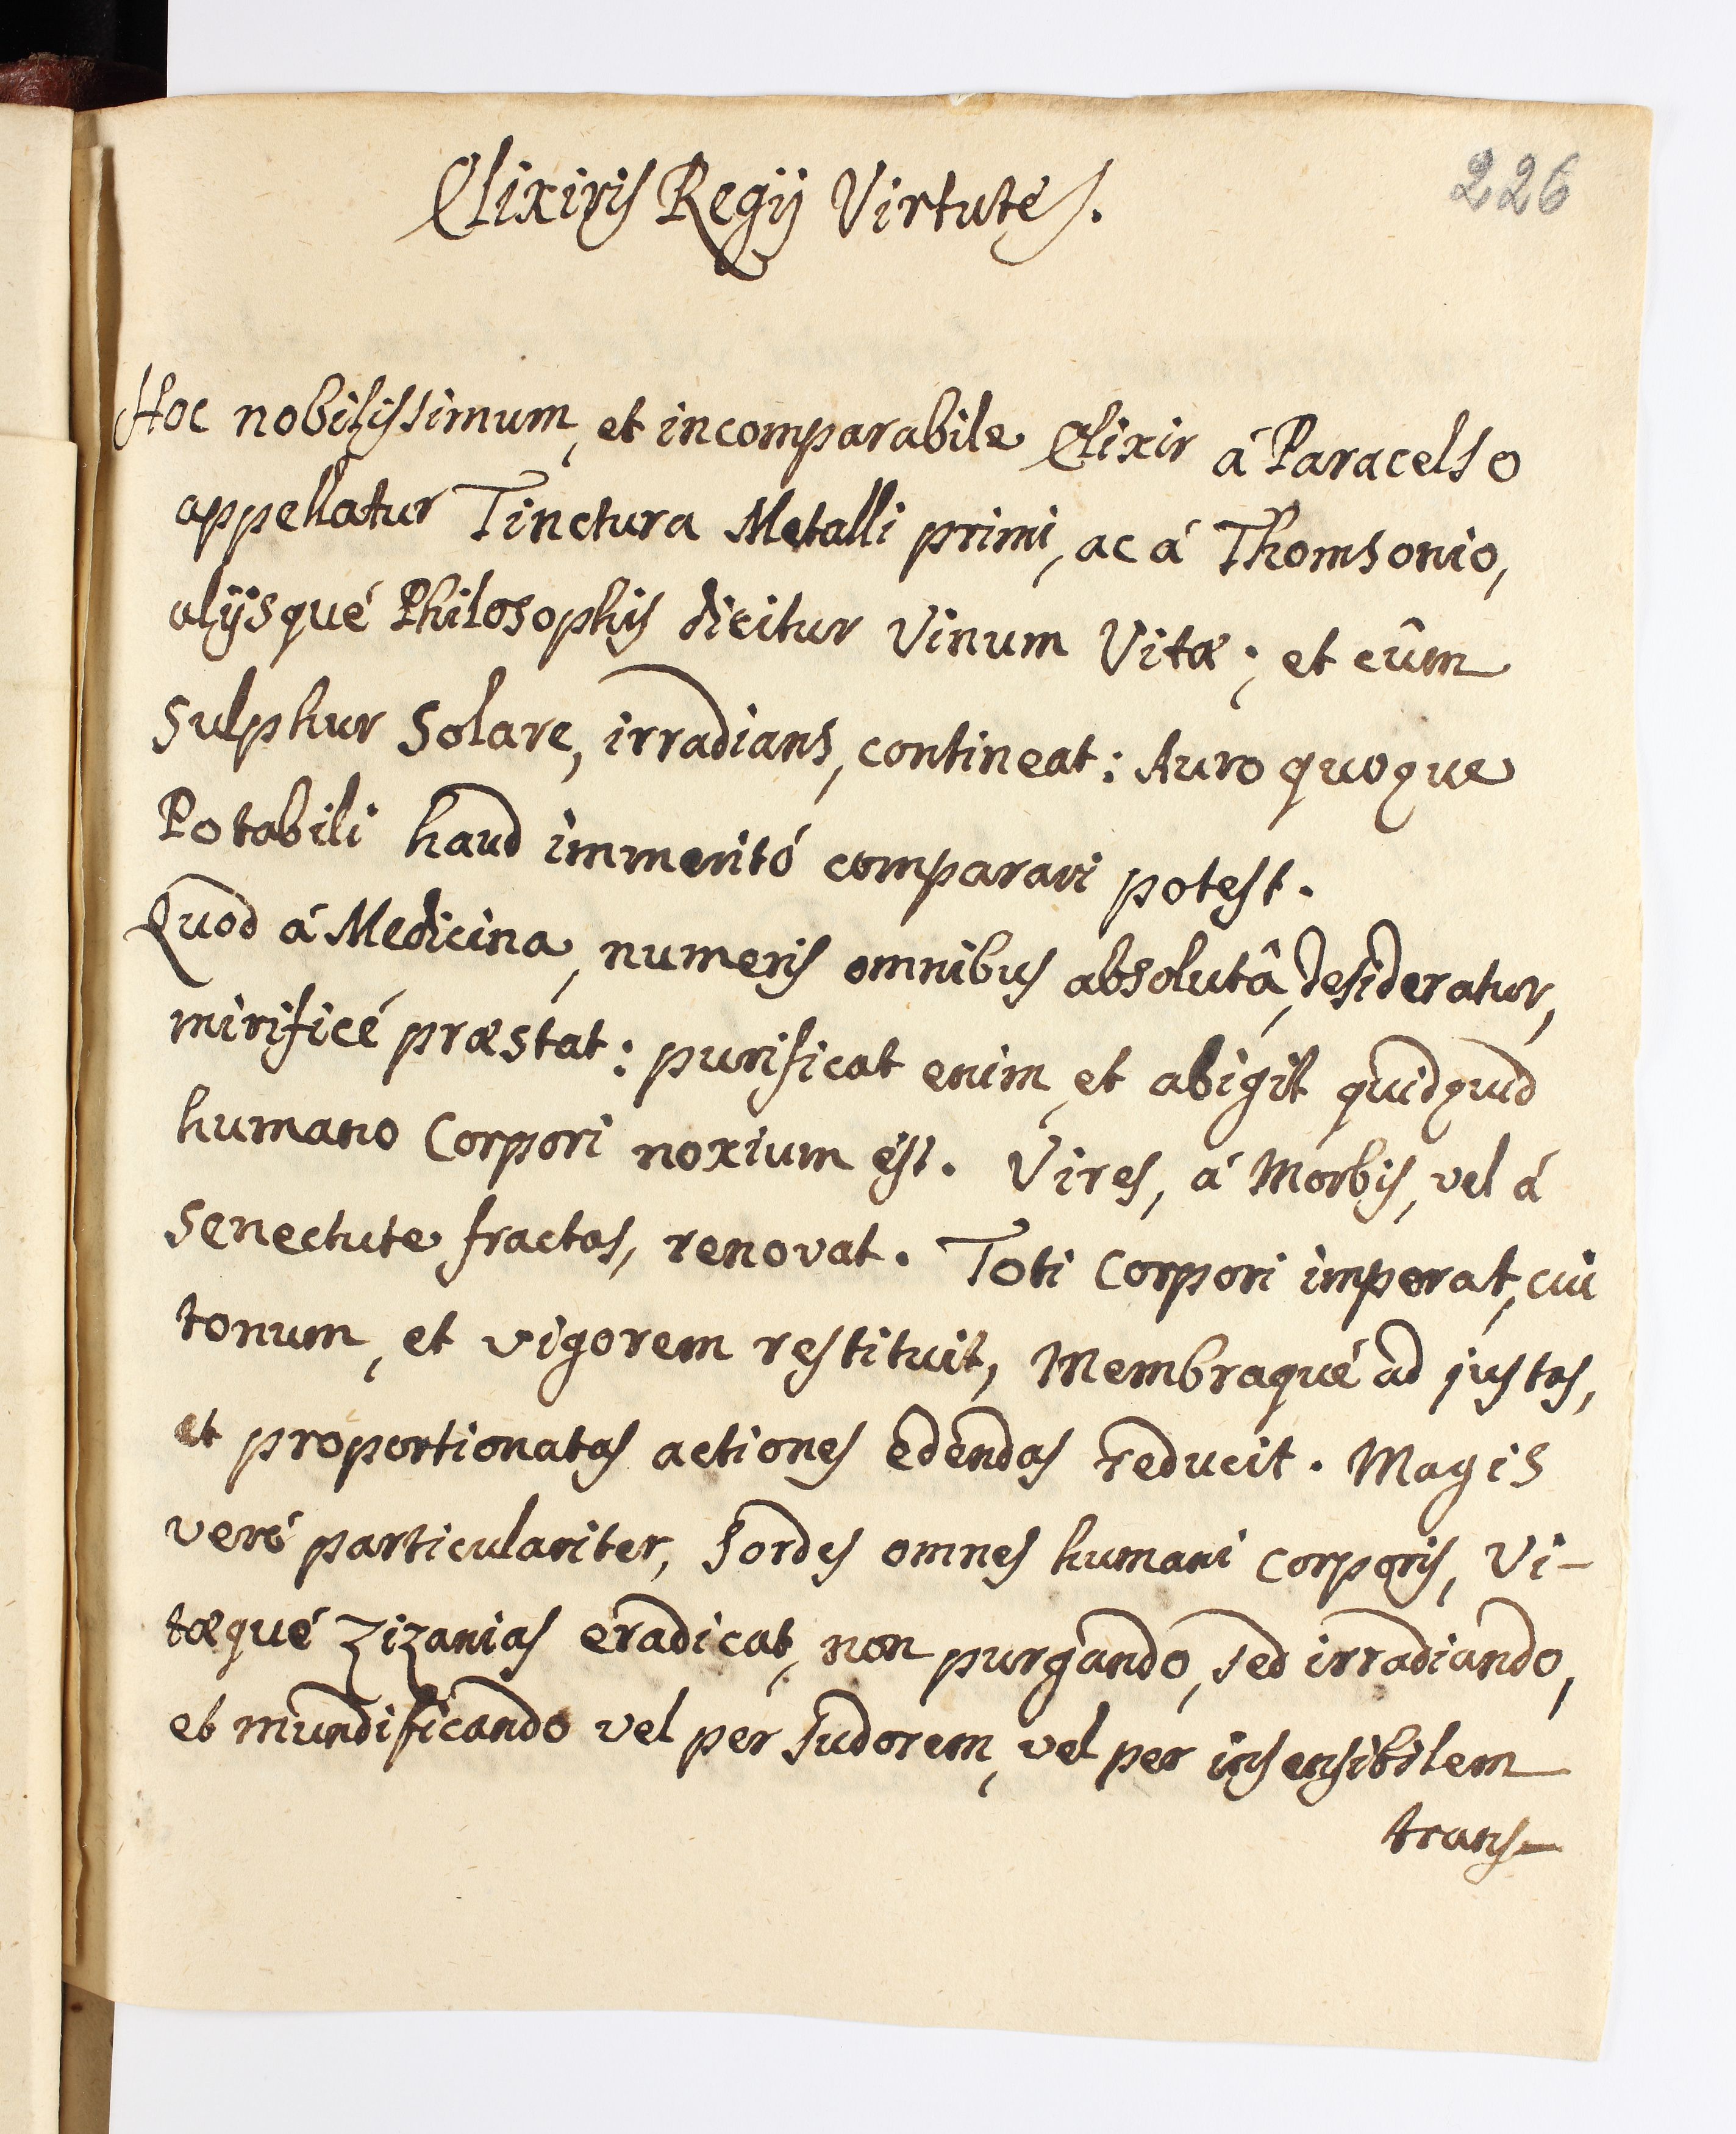 226
Elixiris Regij Virtutes.
Hoc nobilissimum, et incomparabile Elixir á Paracelso
appellatur Tinctura Metalli primi, ac á Thomsonio,
alijsqué Philosophis dicitur Vinum Vitæ; et cûm
Sulphur Solare, irradians, contineat: Auro quoque
Potabili haud immeritó comparari potest.
Quod á Medicina, numeris omnibus absolutâ, desideratur,
mirificé præstat: purificat enim, et abigit quidquid
humano Corpori noxium est. Vires, á Morbis, vel á
Senectute fractas, renovat. Toti Corpori imperat, cui
tonum, et vigorem restituit, Membraqué ad justas,
et proportionatas actiones edendas reducit. Magis
veré particulariter, Sordes omnes humani Corporis, Vi-
tæqué Zizanias eradicat, non purgando, sed irradiando,
et mundificando vel per Sudorem, vel per insensibilem
trans-